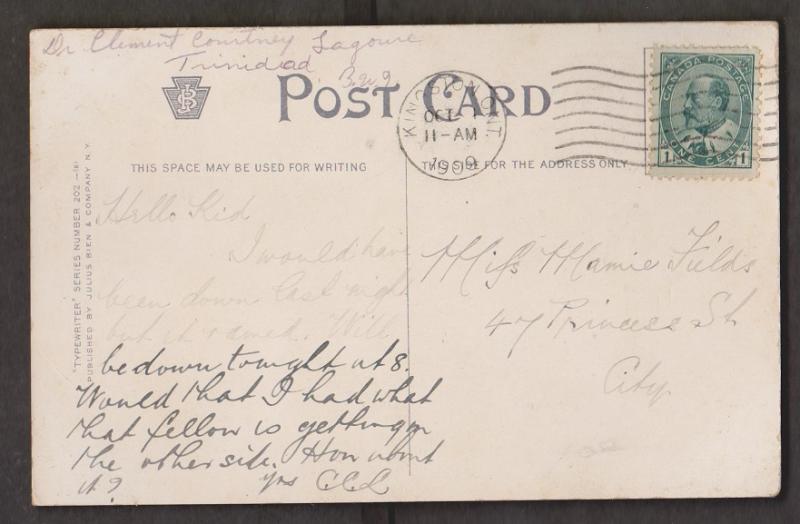 Dr Clement Courtney Lagoure
Trinidad
B.W.I
POST CARD
KINGSTON, ONT.
OCT 1
11-AM
1909
CANADA POSTAGE
1 ONE CENT 1
THIS SPACE MAY BE USED FOR WRITING
THIS SIDE FOR THE ADDRESS ONLY
"TYPEWRITER" SERIES NUMBER 202-(8)
PUBLISHED BY JULIUS BIEN & COMPANY N.Y.
Hello Kid
I would have
been down last night
but it rained. Will
be down tonight at 8.
Would that I had what
that fellow is getting on
the other side. How about
it? Yrs CCL
Miss Mamie Fields
47 Princess St
City